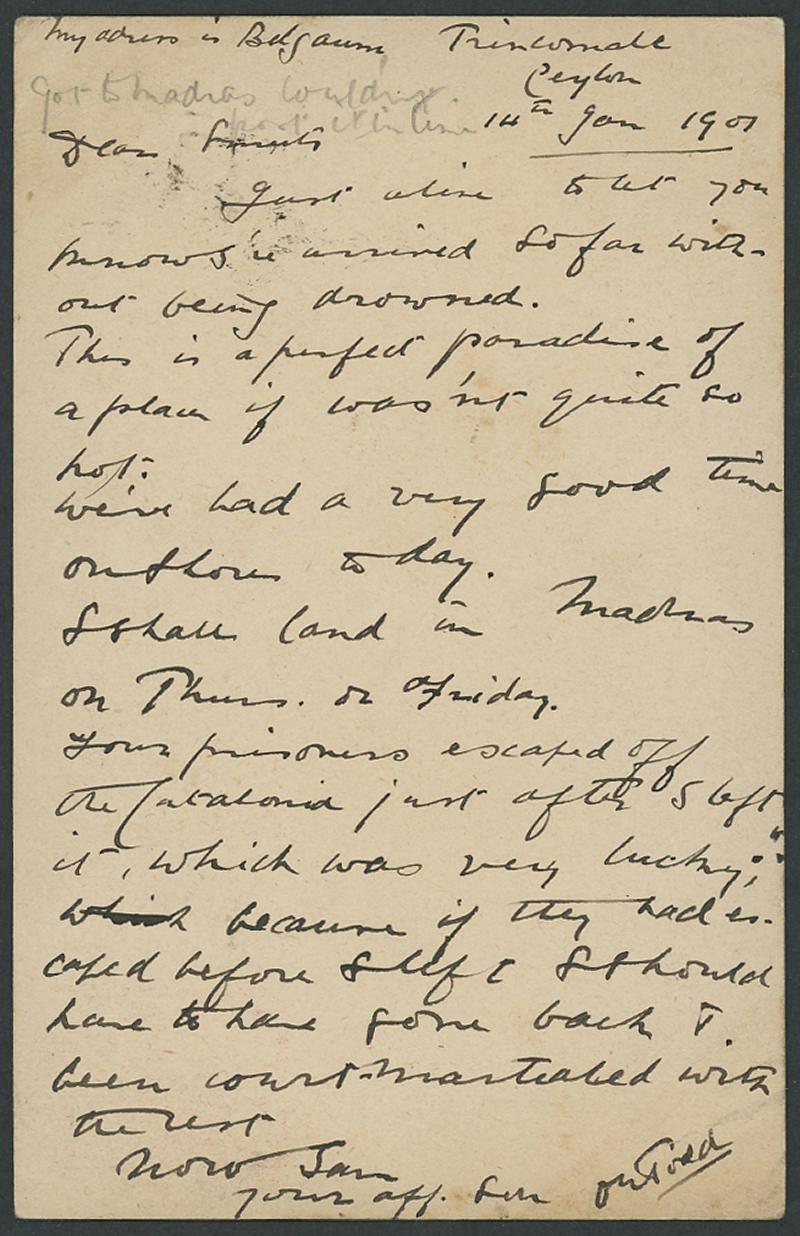 My adress is Belgaum
Trincomale
Ceylon
Got to Madras couldn't
post it in time
14th Jan 1901
Dear
Just a line to let you
know I've arrived so far with-
out being drowned.
This is a perfect paradise of
a place if was'nt quite so
hot.
We've had a very good time
on shore to day.
I shall land in Madras
on Thurs. or Friday.
Four prisoners escaped off
the Catalonia just after I left
it, which was very lucky;
which because if they had es-
caped before I left I should
have to have gone back &
been court-martialed with
the rest
Now I am
your aff. son